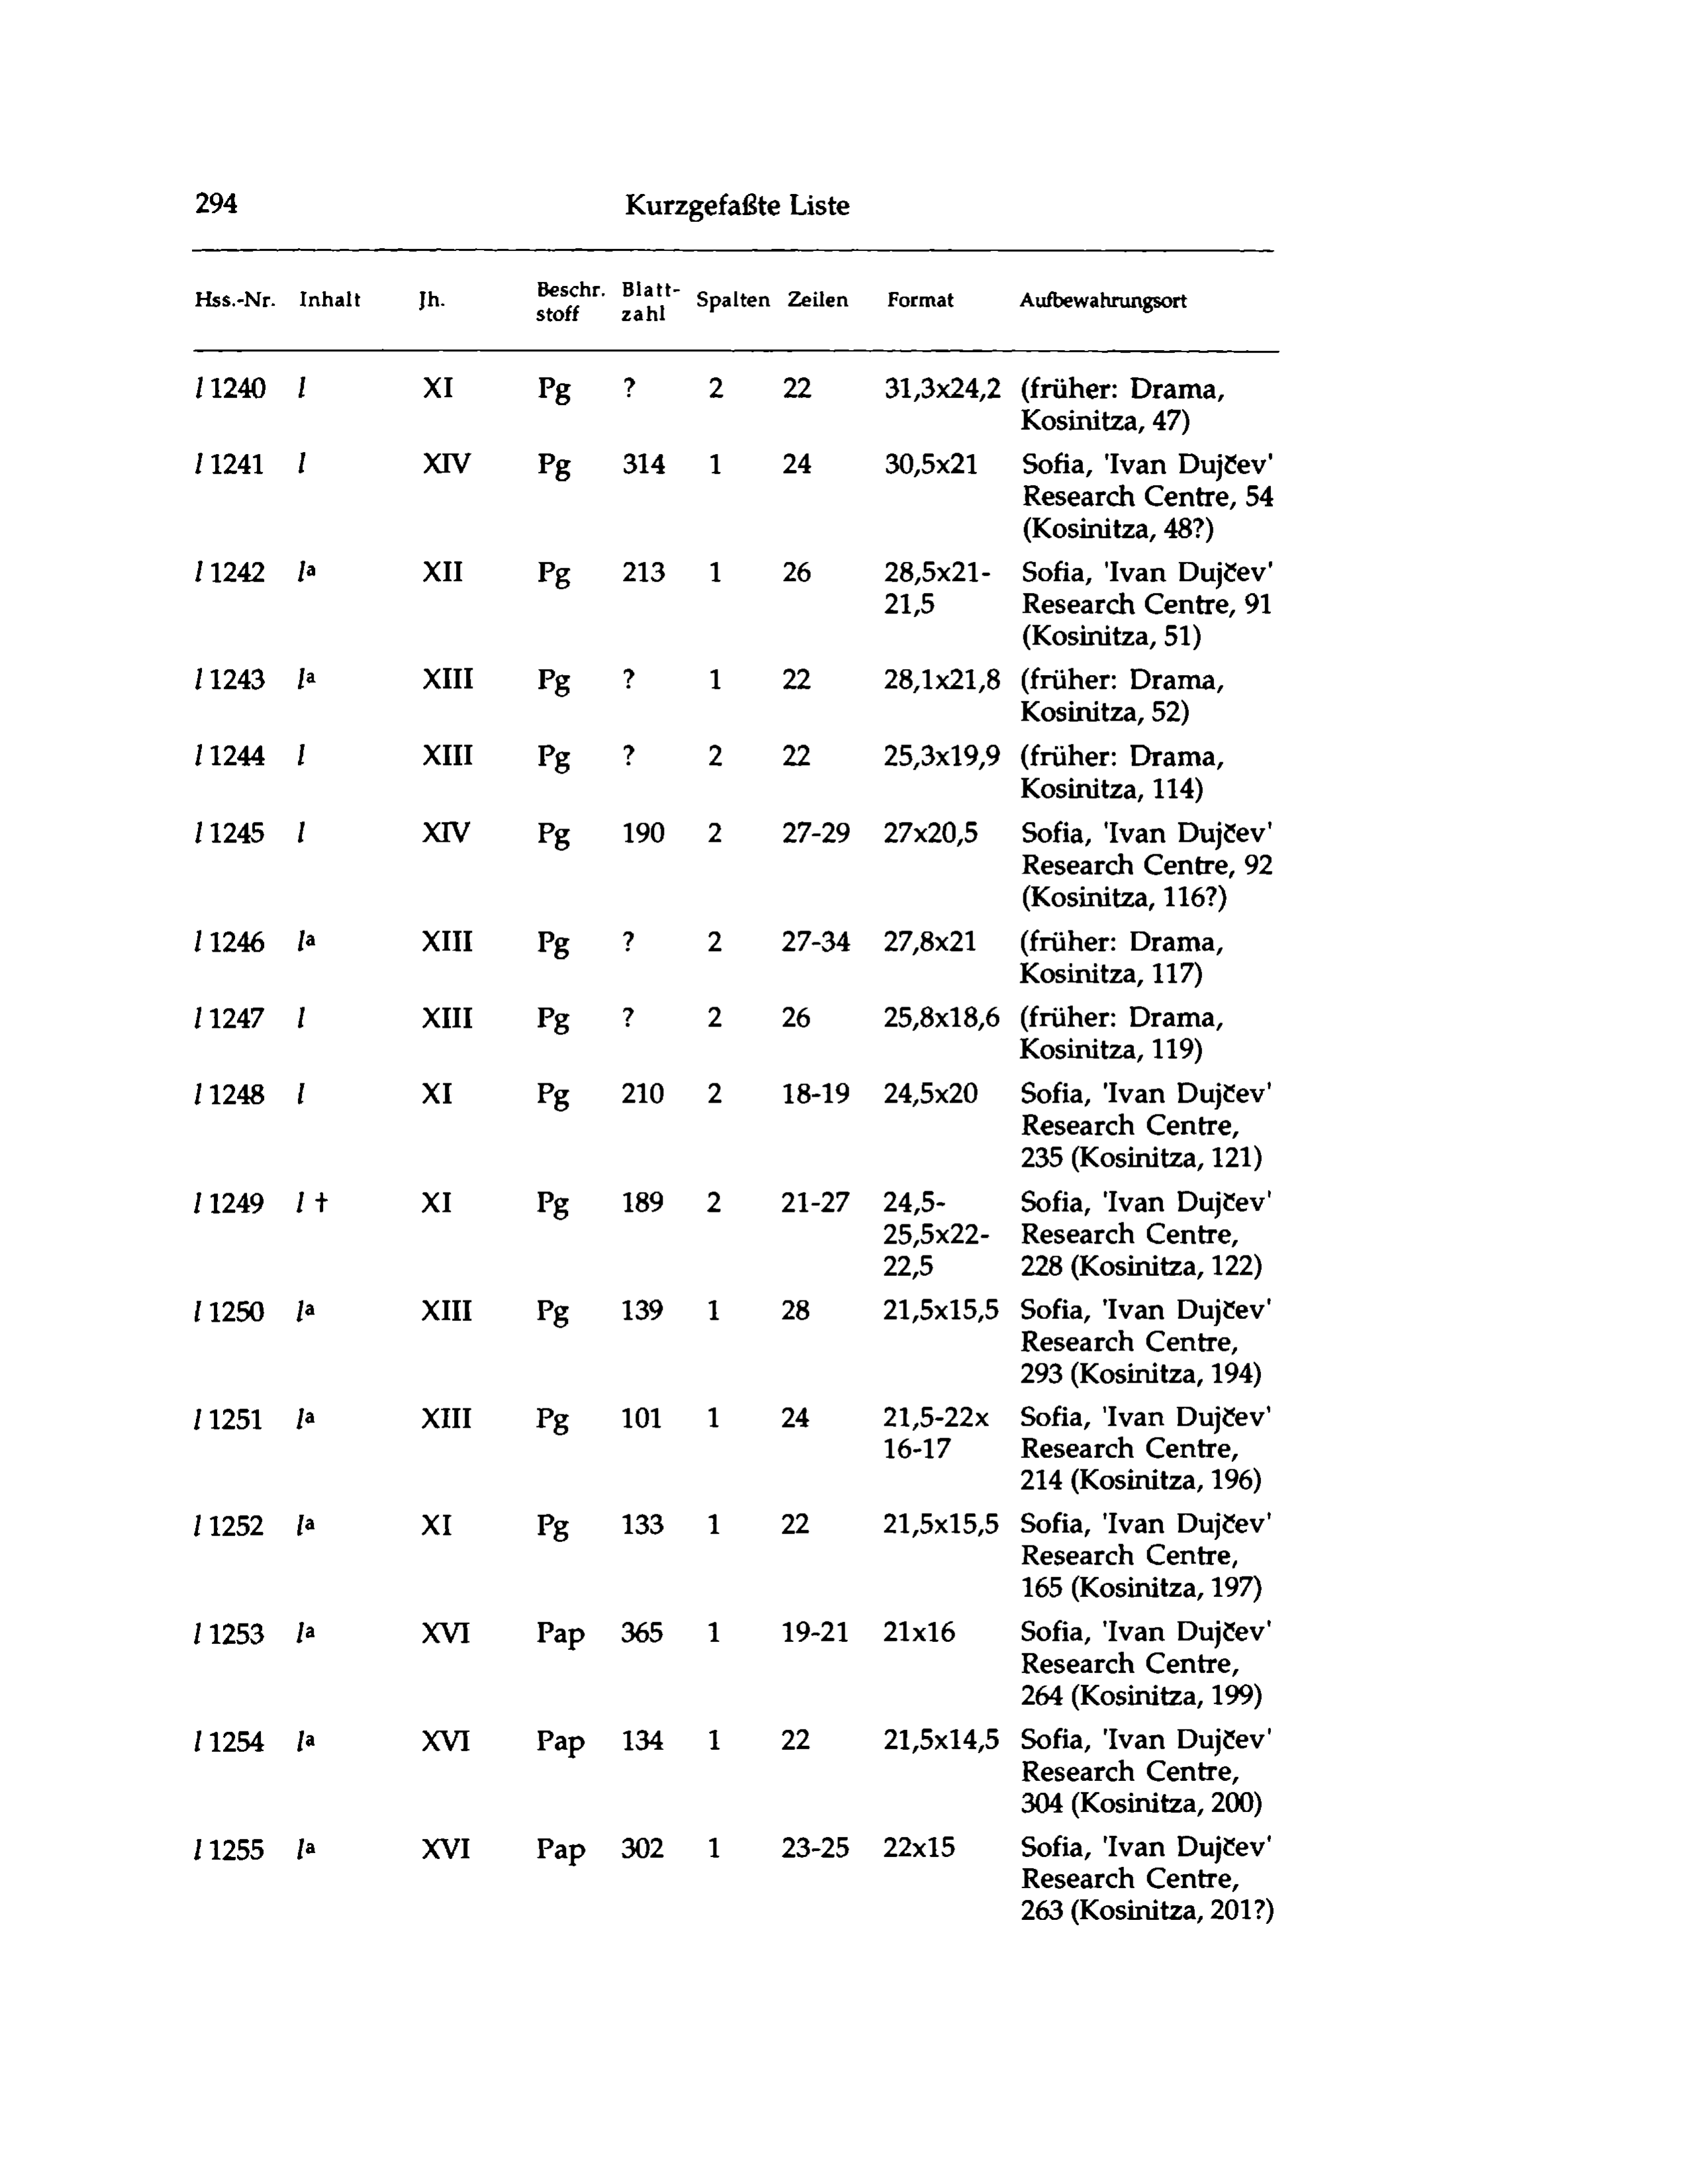 294 Kurzgefaßte Liste
Hss.-Nr. Inhalt Jh. Beschr. Blatt- Spalten Zeilen Format Aufbewahrungsort
stoff zahl
l 1240 l XI Pg ? 2 22 31,3x24,2 (früher: Drama,
Kosinitza, 47)
l 1241 l XIV Pg 314 1 24 30,5x21 Sofia, 'Ivan Dujčev'
Research Centre, 54
(Kosinitza, 48?)
l 1242 lª XII Pg 213 1 26 28,5x21- Sofia, 'Ivan Dujčev'
21,5 Research Centre, 91
(Kosinitza, 51)
l 1243 lª XIII Pg ? 1 22 28,1x21,8 (früher: Drama,
Kosinitza, 52)
l 1244 l XIII Pg ? 2 22 25,3x19,9 (früher: Drama,
Kosinitza, 114)
l 1245 l XIV Pg 190 2 27-29 27x20,5 Sofia, 'Ivan Dujčev'
Research Centre, 92
(Kosinitza, 116?)
l 1246 lª XIII Pg ? 2 27-34 27,8x21 (früher: Drama,
Kosinitza, 117)
l 1247 l XIII Pg ? 2 26 25,8x18,6 (früher: Drama,
Kosinitza, 119)
l 1248 l XI Pg 210 2 18-19 24,5x20 Sofia, 'Ivan Dujčev'
Research Centre,
235 (Kosinitza, 121)
l 1249 l † XI Pg 189 2 21-27 24,5- Sofia, 'Ivan Dujčev'
25,5x22- Research Centre,
22,5 228 (Kosinitza, 122)
l 1250 lª XIII Pg 139 1 28 21,5x15,5 Sofia, 'Ivan Dujčev'
Research Centre,
293 (Kosinitza, 194)
l 1251 lª XIII Pg 101 1 24 21,5-22x Sofia, 'Ivan Dujčev'
16-17 Research Centre,
214 (Kosinitza, 196)
l 1252 lª XI Pg 133 1 22 21,5x15,5 Sofia, 'Ivan Dujčev'
Research Centre,
165 (Kosinitza, 197)
l 1253 lª XVI Pap 365 1 19-21 21x16 Sofia, 'Ivan Dujčev'
Research Centre,
264 (Kosinitza, 199)
l 1254 lª XVI Pap 134 1 22 21,5x14,5 Sofia, 'Ivan Dujčev'
Research Centre,
304 (Kosinitza, 200)
l 1255 lª XVI Pap 302 1 23-25 22x15 Sofia, 'Ivan Dujčev'
Research Centre,
263 (Kosinitza, 201?)